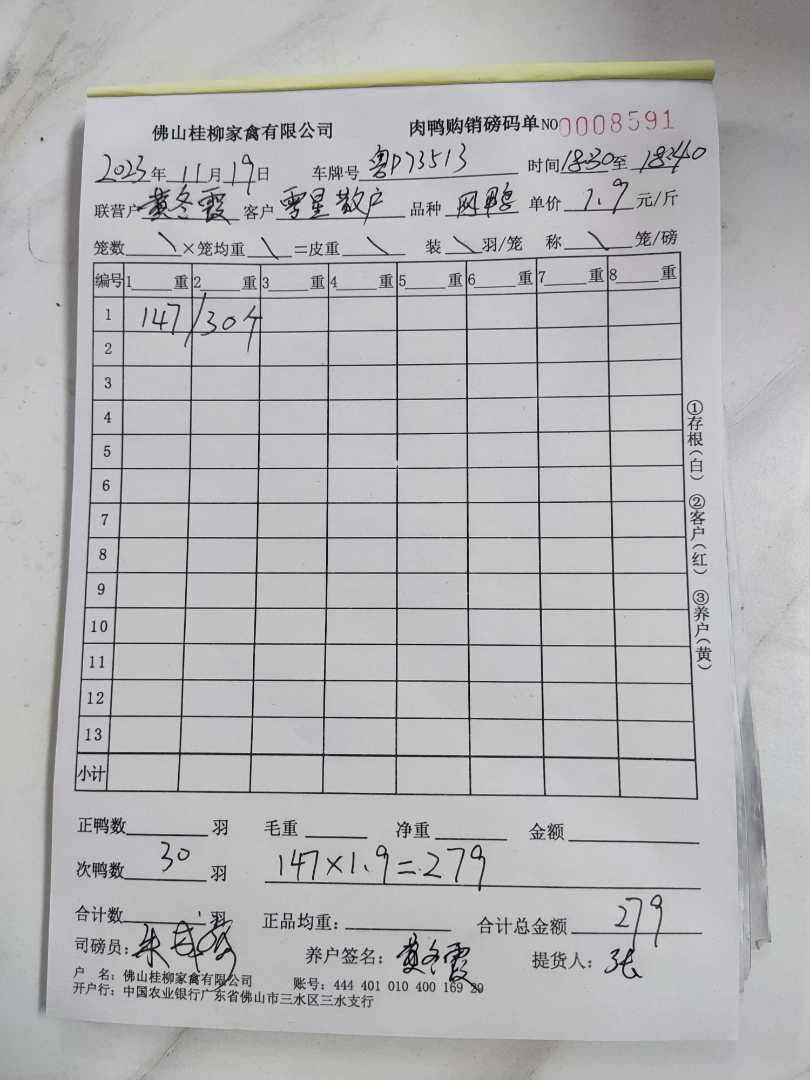 佛山桂柳家禽有限公司 肉鸭购销磅码单 NO 0008591
2023年 11月 19日 车牌号 粤P73513 时间 18:30 至 18:40
联营户 黄冬霞 客户 雪星散户 品种 网鸭 单价 1.9 元/斤
笼数 \ ×笼均重 \ =皮重 \ 装 \ 羽/笼 称 \ 笼/磅
编号 1 重 2 重 3 重 4 重 5 重 6 重 7 重 8 重
1 147/30个
2
3
4
5
6
7
8
9
10
11
12
13
小计
①存根(白) ②客户(红) ③养户(黄)
正鸭数 羽 毛重 净重 金额
次鸭数 30 羽 147×1.9=279
合计数 羽 正品均重: 合计总金额 279
司磅员: 养户签名: 黄冬霞 提货人: 张
户 名: 佛山桂柳家禽有限公司 账号: 444 401 010 400 169 29
开户行: 中国农业银行广东省佛山市三水区三水支行